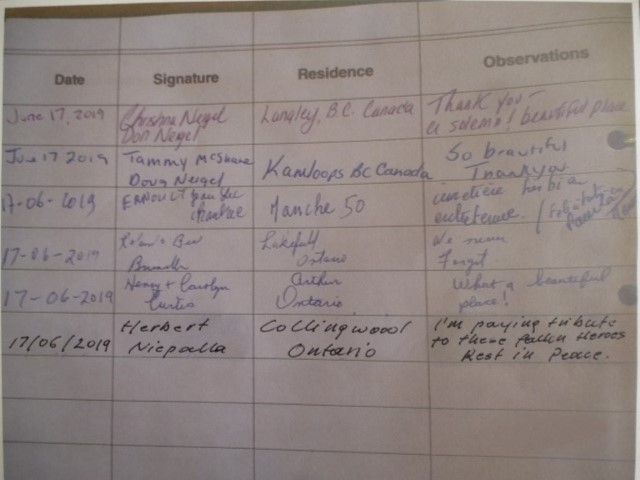 Date Signature Residence Observations
June 17, 2019 Christina Negel Langley, B.C. Canada Thank you -
Don Negel a solemn! beautiful place
June 17 2019 Tammy McShane Kamloops BC Canada So beautiful
Doug Neigel Thank you
17-06-2019 Manche 50 cimetière
entretenue.
17-06-2019 Lakefield We never
Ontario Forget.
17-06-2019 Henry + Carolyn Arthur What a beautiful
Curtis Ontario place!
17/06/2019 Herbert Collingwood I'm paying tribute
Niepalla Ontario to these fallen Heroes
Rest in Peace.